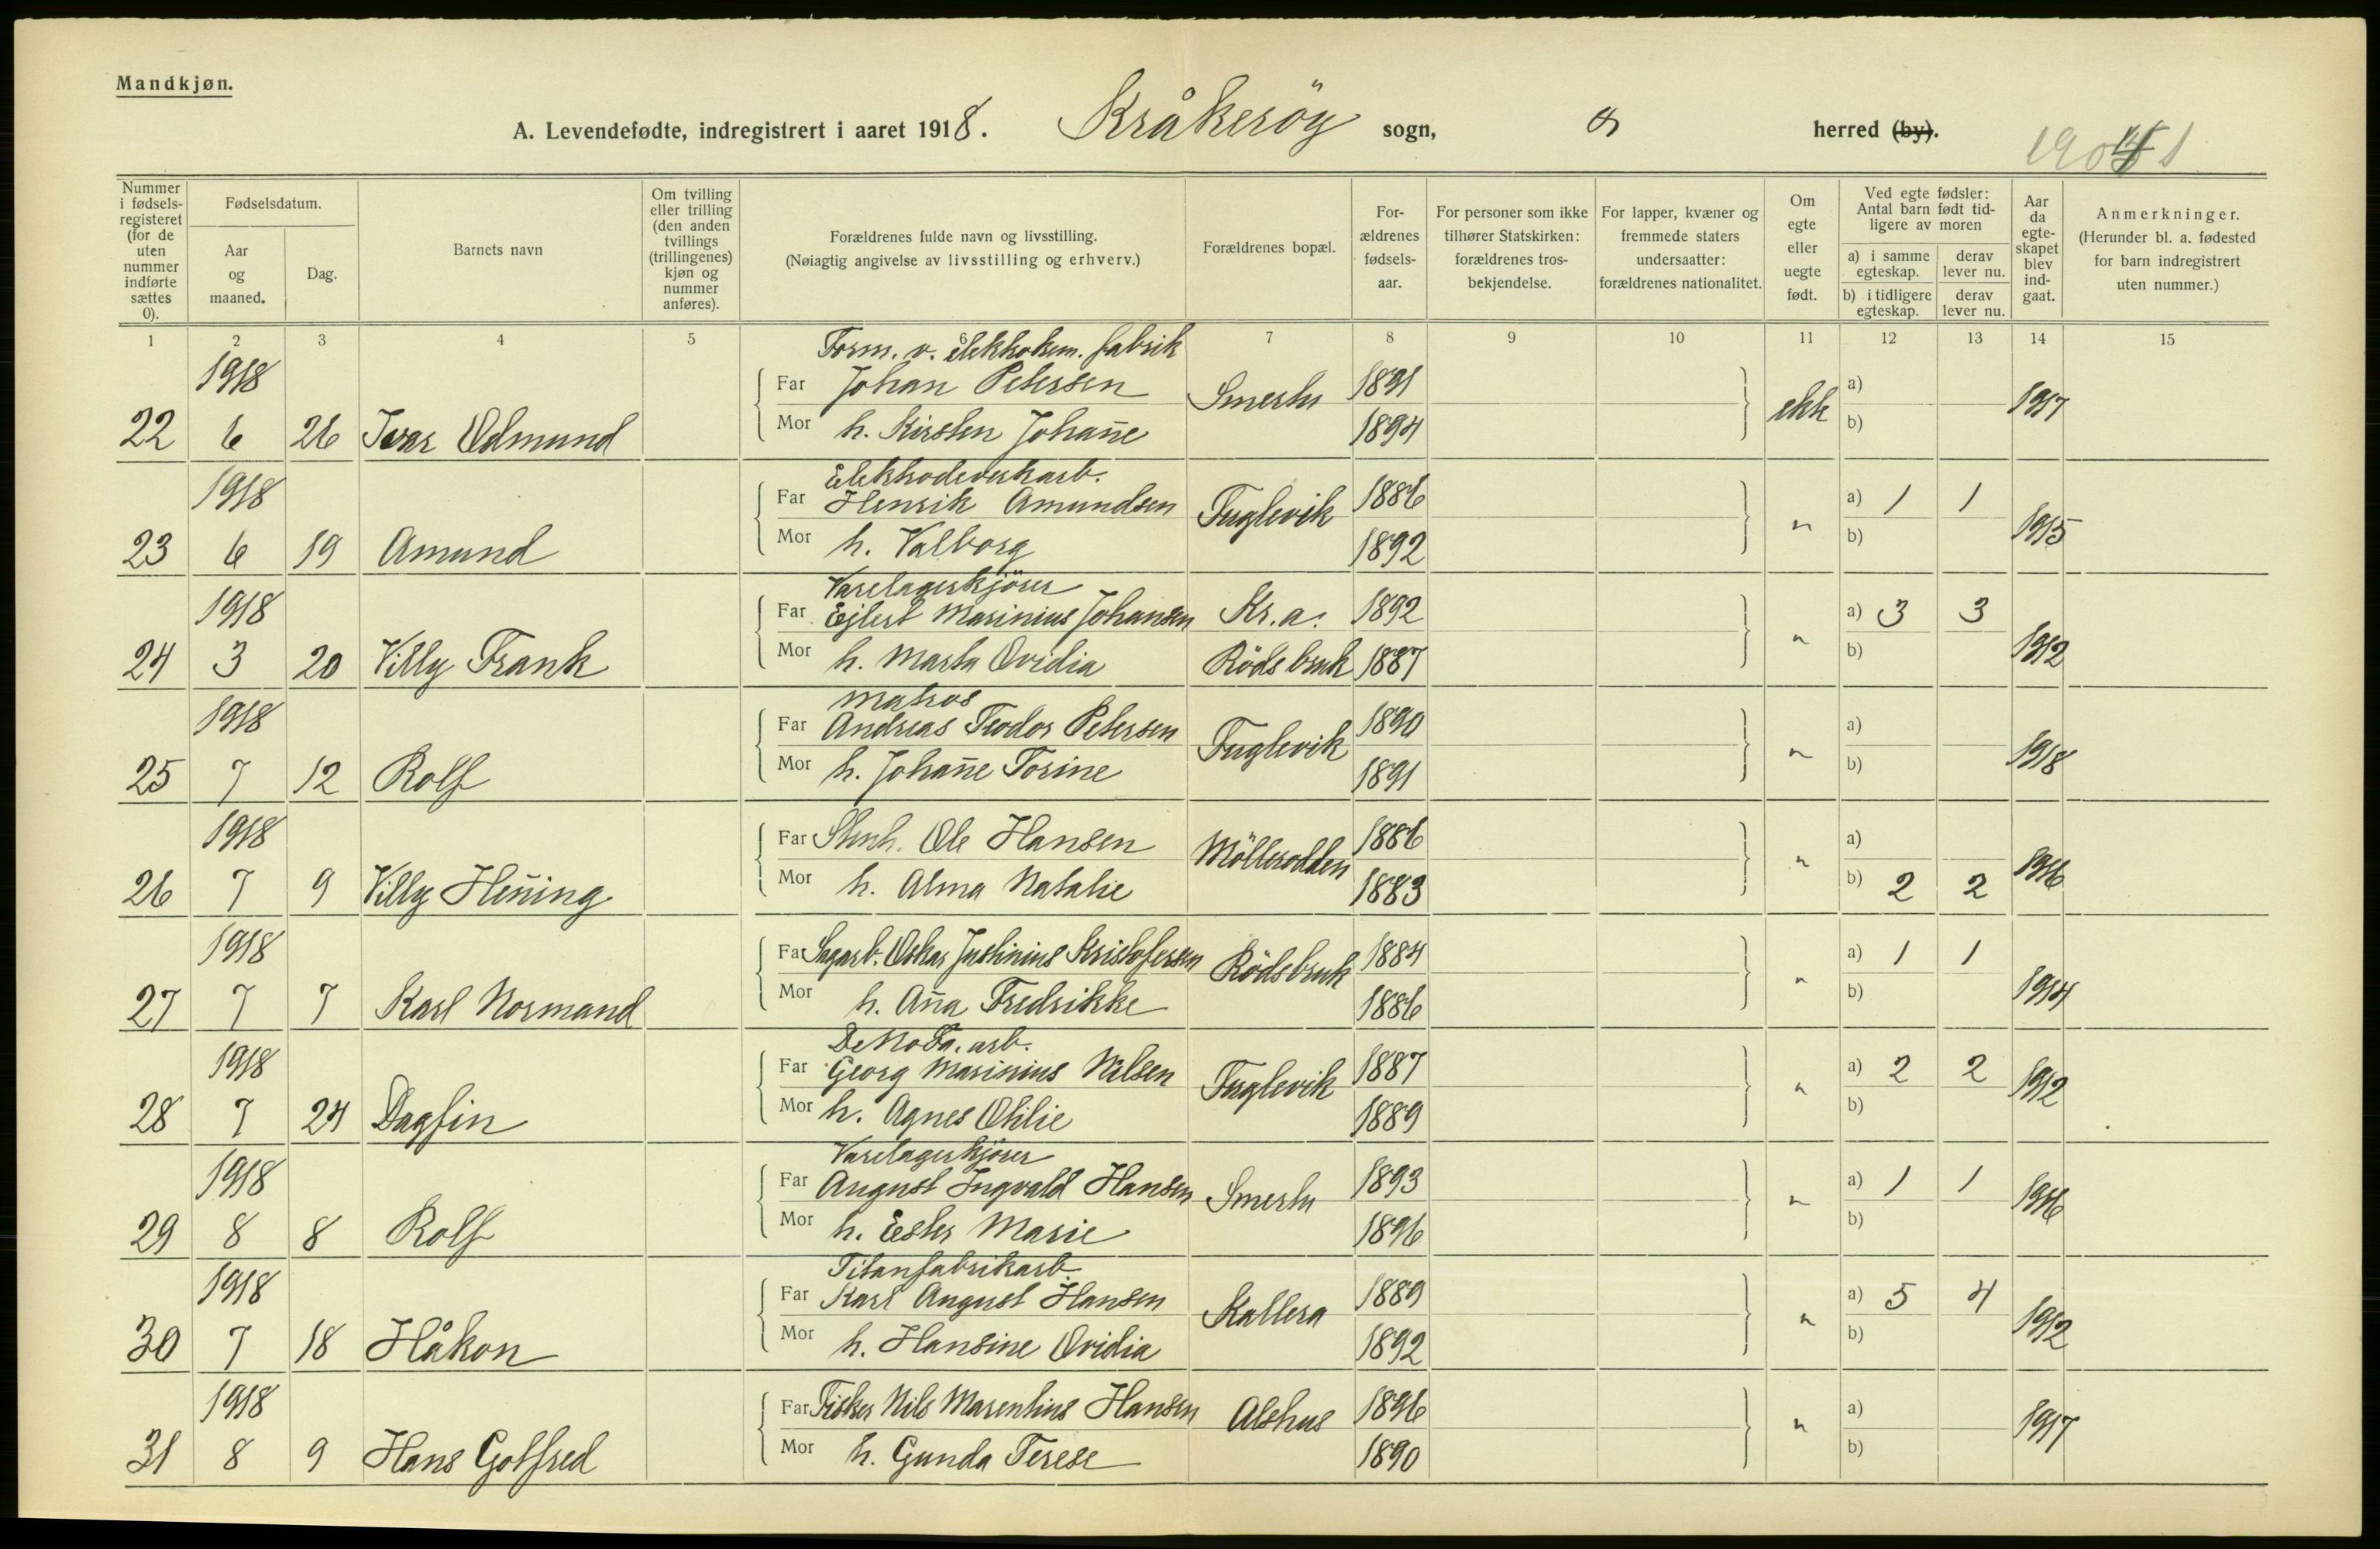 Mandkjøn.
A. Levendefødte, indregistrert i aaret 1918. Kråkeröy sogn, herred (by).
Nummer i fødselsregisteret (for de uten nummer indførte sættes 0).
Fødselsdatum.
Aar og maaned.
Dag.
Barnets navn
Om tvilling eller trilling (den anden tvillings (trillingenes) kjøn og nummer anføres).
Forældrenes fulde navn og livsstilling.
(Nøiagtig angivelse av livsstilling og erhverv.)
Forældrenes bopæl.
Forældrenes fødselsaar.
For personer som ikke tilhører Statskirken: forældrenes trosbekjendelse.
For lapper, kvæner og fremmede staters undersaatter: forældrenes nationalitet.
Om egte eller uegte født.
Ved egte fødsler: Antal barn født tidligere av moren
a) i samme egteskap.
derav lever nu.
b) i tidligere egteskap.
derav lever nu.
Aar da egteskapet blev indgaat.
Anmerkninger.
(Herunder bl. a. fødested for barn indregistrert uten nummer.)
1 2 3 4 5 7 8 9 10 11 12 13 14 15
Form. v. elektrokem. fabrik
1918 Far Johan Petersen Smertu 1891 ekte a) 1917
22 6 26 Ivar Odmund Mor h. Kirsten Johan̄e 1894 b)
Elektrodeverkarb.
1918 Far Henrik Amundsen Fuglevik 1886 " a) 1 1 1915
23 6 19 Amund Mor h. Valborg 1892 b)
Varelagerkjörer
1918 Far Ejlert Marinius Johansen Kr.a. 1892 " a) 3 3 1912
24 3 20 Villy Frank Mor h. Marta Ovidia Rödsbruk 1887 b)
Matros
1918 Far Andreas Teodor Petersen Fuglevik 1890 " a) 1918
25 7 12 Rolf Mor h. Johan̄e Torine 1891 b)
1918 Far Stenh. Ole Hansen Möllerodden 1886 " a) 1916
26 7 9 Villy Hen̄ing Mor h. Alma Natalie 1883 b) 2 2
1918 Far Sagarb. Oskar Justinius Kristofersen Rödsbruk 1884 " a) 1 1 1914
27 7 7 Karl Normand Mor h. An̄a Fredrikke 1886 b)
DeNoFa. arb.
1918 Far Georg Marinius Nilsen Fuglevik 1887 " a) 2 2 1912
28 7 24 Dagfin Mor h. Agnes Otilie 1889 b)
Varelagerkjörer
1918 Far August Ingvald Hansen Smertu 1893 " a) 1 1 1916
29 8 8 Rolf Mor h. Ester Marie 1896 b)
Titanfabrikarb.
1918 Far Karl August Hansen Kallera 1889 " a) 5 4 1912
30 7 18 Håkon Mor h. Hansine Ovidia 1892 b)
1918 Far Fisker Nils Marentius Hansen Alshus 1896 " a) 1917
31 8 9 Hans Gotfred Mor h. Gunda Terese 1890 b)